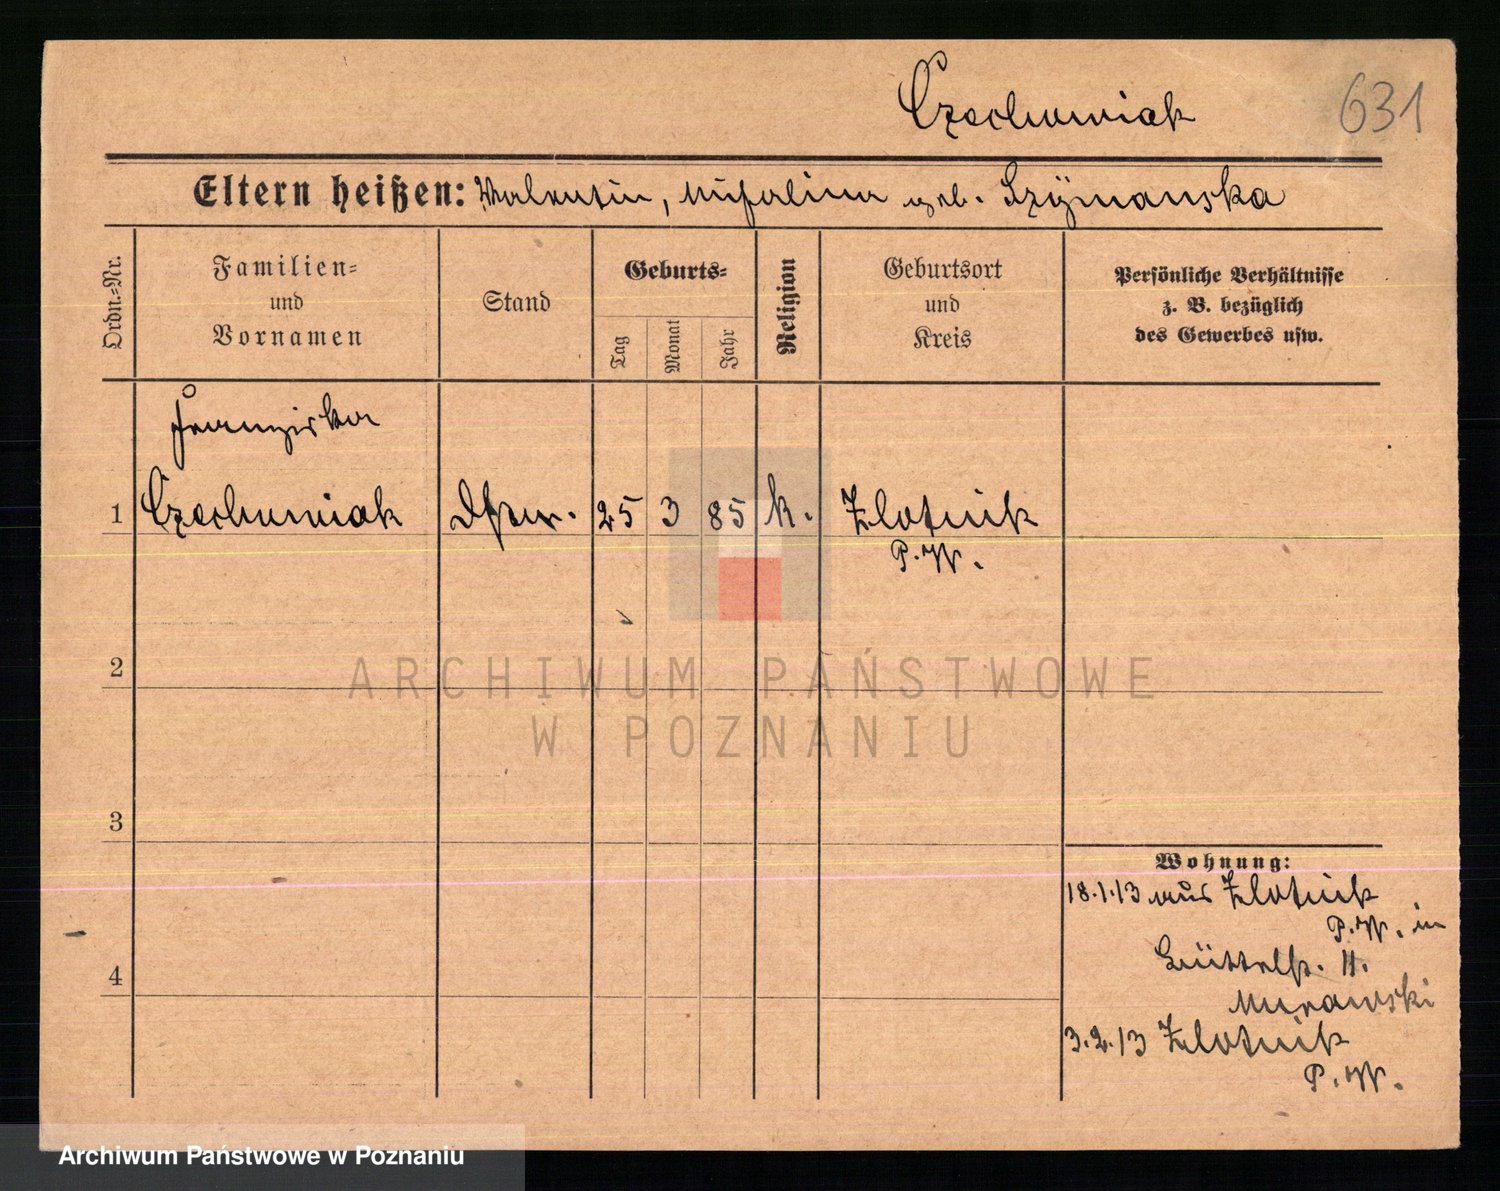 Czechowiak 631
Eltern heißen: Valentin, Michalina geb. Szymanska
Ordn.-Nr.
Familien- und Vornamen
Stand
Geburts-
Tag Monat Jahr
Religion
Geburtsort und Kreis
Persönliche Verhältnisse
z. B. bezüglich
des Gewerbes usw.
Franziska
1 Czechowiak 25 3 85 k. Zlotnik
P.W.
2
ARCHIWUM PAŃSTWOWE
W POZNANIU
3
4
Wohnung:
18.1.13 aus Zlotnik
P.W. in
11.
Murawski
3.2.13 Zlotnik
P.W.
Archiwum Państwowe w Poznaniu